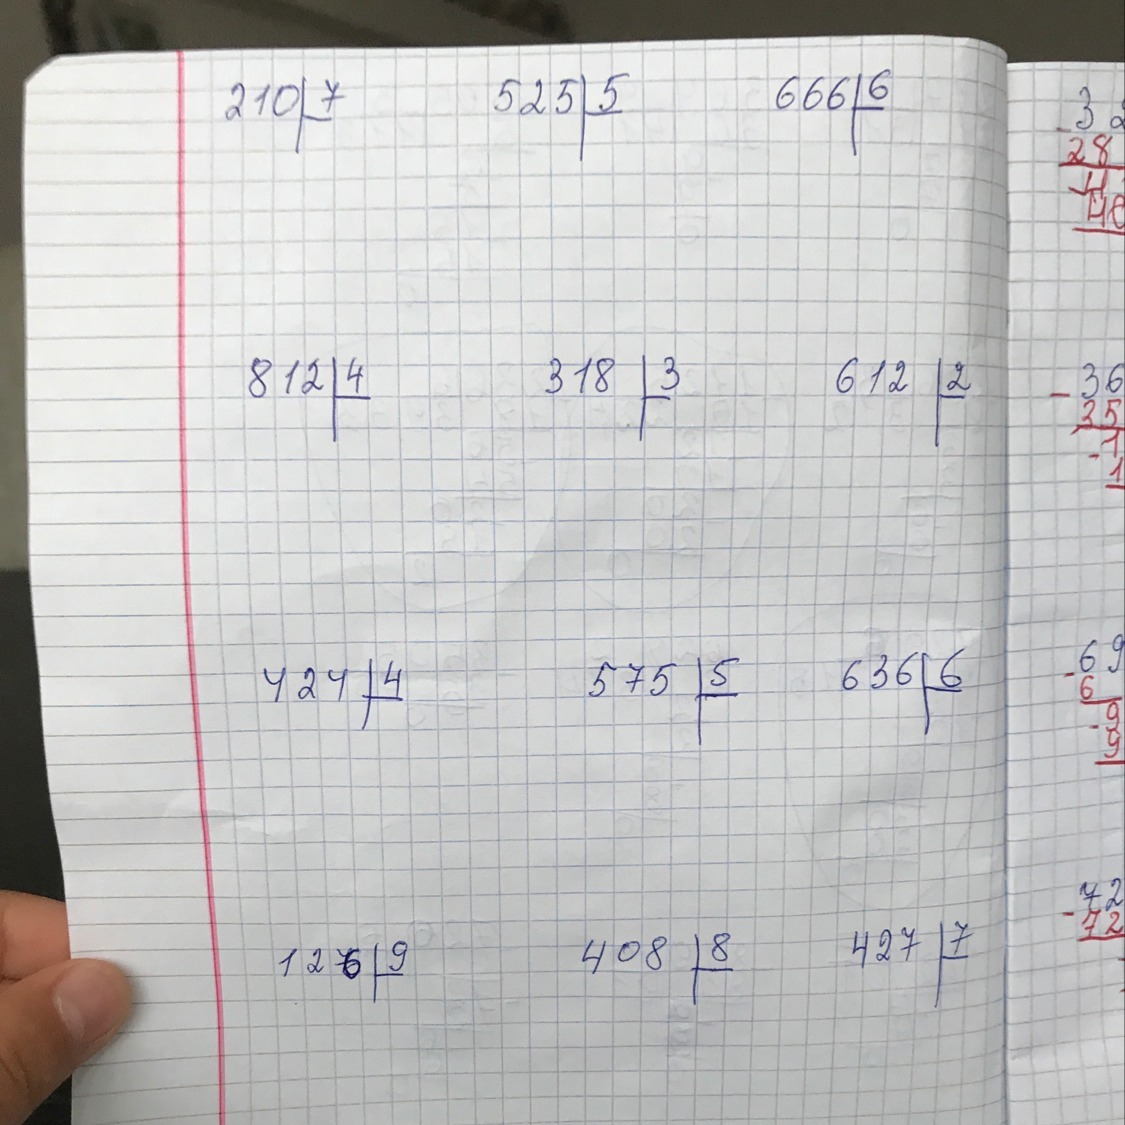 210 7 525 5 666 6
812 4 318 3 612 2
424 4 575 5 636 6
126 9 408 8 427 7
3
28
48
36
- 35
- 1
1
69
- 6
- 9
9
72
- 72